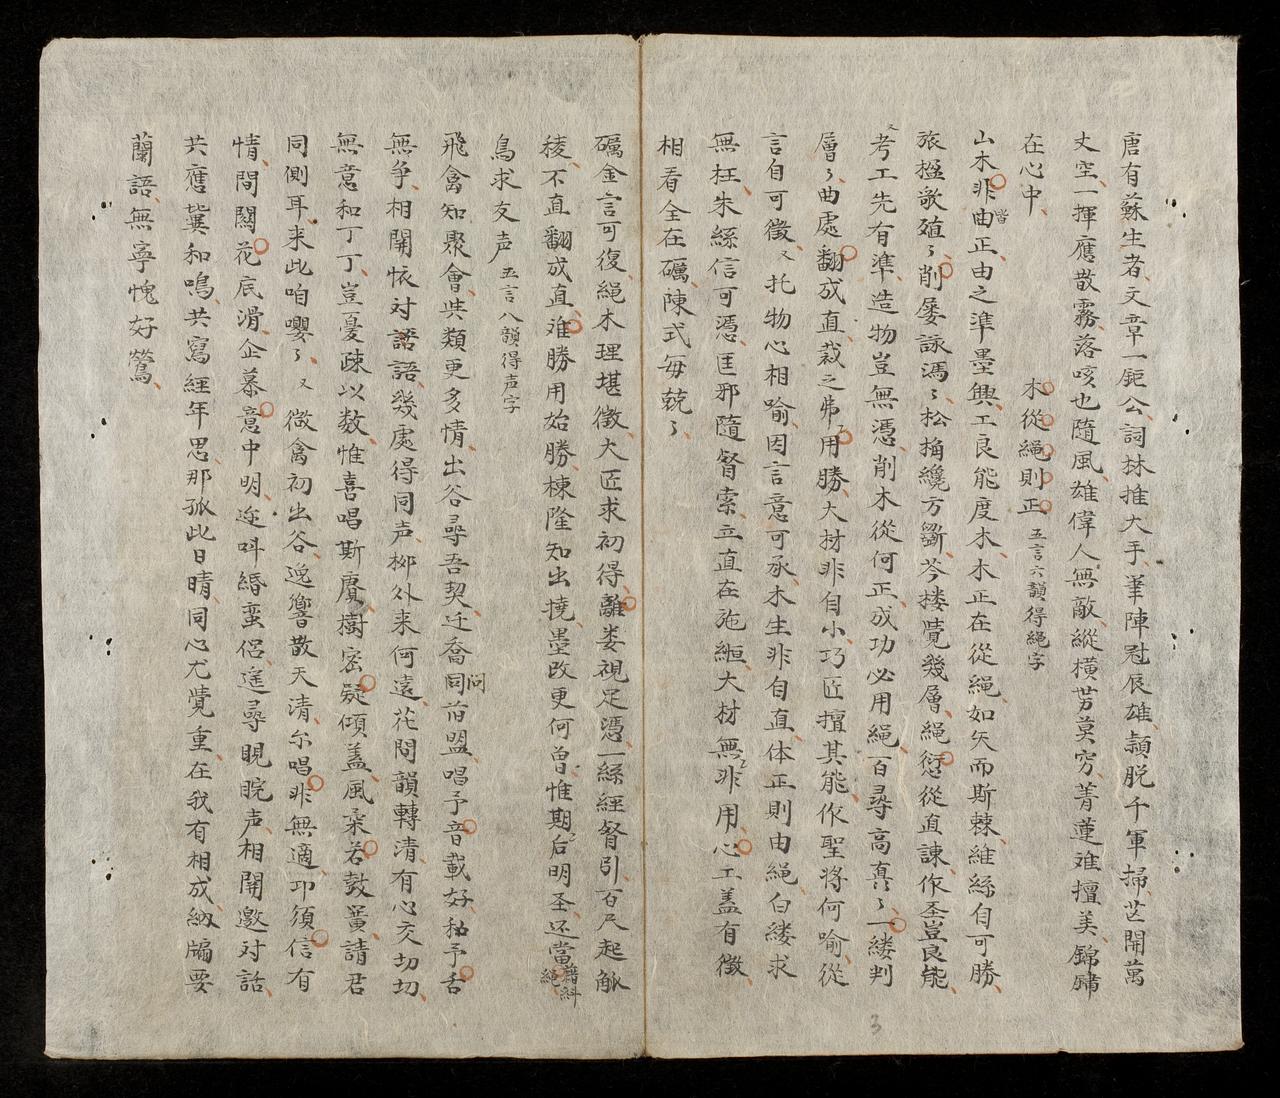 唐有蘇生者文章一鉅公詞林推大手筆陣冠辰雄頴脱千軍掃茫開萬
丈空一揮應散霧落咳也隨風雄偉人無敵縱橫芳莫穷菁蓮难擅美錦
在心中
木從繩則正 五言六韻得繩字
山木非皆曲正由之準墨興工良能度木木正在從繩如矢而斯棘維絲自可勝
旅楹歌殖殖削屡詠馮馮松桷纔方斵岑楼覺幾層繩愆從直諫作圣豈良能
又 考工先有準造物豈無憑削木從何正成功必用繩百尋高真真一縷判
層層曲處翻成直裁之弗用勝大材非自小巧匠擅其能作聖將何喻從
言自可徵 又 托物心相喻因言意可承木生非自直体正則由繩白縷求
無枉朱絲信可憑匡邪隨督索立直在施絙大材無非用心工盖有徵
相看全在礪陳式每兢兢
礪金言可復繩木理堪徵大匠求初得離娄視足憑一絲經督引百尺起觚
稜不直翻成直难勝用始勝棟隆知出撓墨改更何曾惟期后明圣还當藉糾繩
鳥求友声 五言八韻得声字
飛禽知聚會芸類更多情出谷尋吾契迁喬同问前盟唱予音載好和予舌
無爭相開恢对語語幾處得同声柳外来何遠花间韻轉清有心交切切
無意和丁丁豈憂疎以数惟喜唱斯賡樹宻疑傾盖風柔若鼓簧請君
同側耳来此咱嚶嚶 又 微禽初出谷逸響散天清尔唱非無適卬須信有
情間關花底滑企慕意中明迩呌緡蛮侣遥尋睍睆声相開邀对話
共應兾和鳴共寫經年思那孤此日晴同心尤覺重在我有相成納牖要
蘭語無寧愧好鶯
3